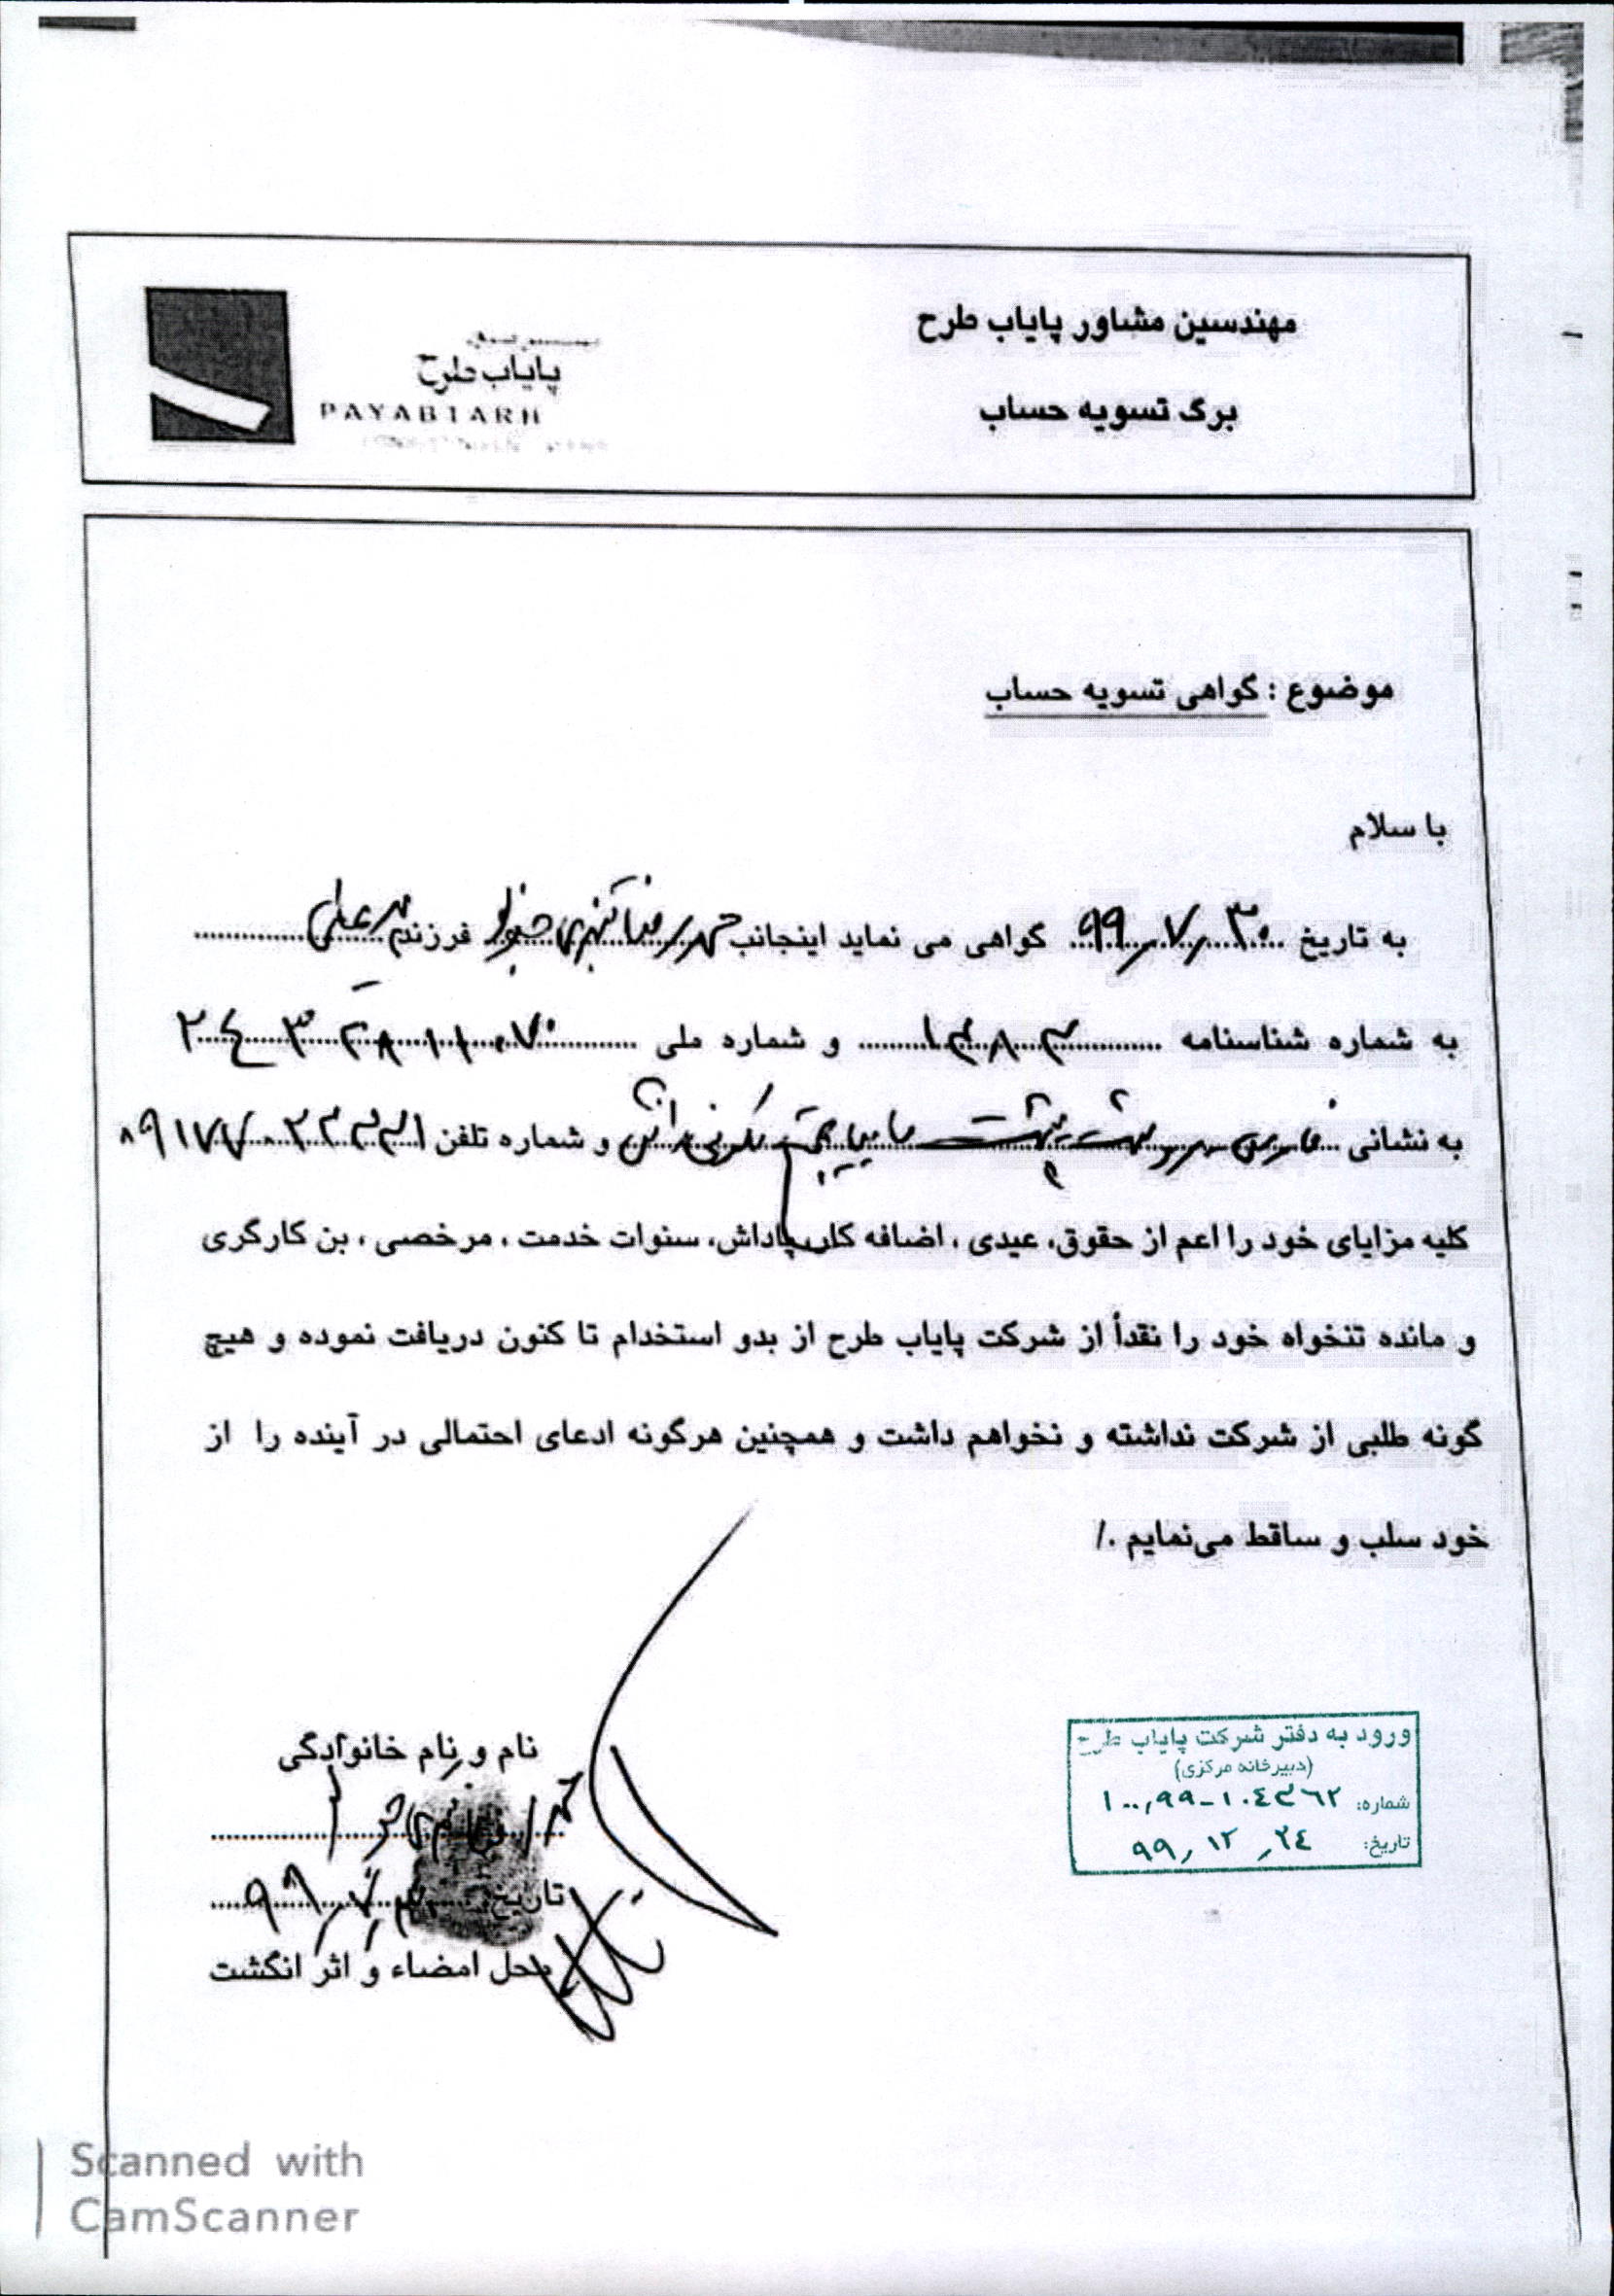 مهندسین مشاور پایاب طرح
برگ تسویه حساب
پایاب طرح
PAYABTARH
موضوع : گواهی تسویه حساب
با سلام
به تاریخ ۹۹٫۷٫۳۰ گواهی می نماید اینجانب فرزند
به شماره شناسنامه و شماره ملی
به نشانی فارس و شماره تلفن
کلیه مزایای خود را اعم از حقوق، عیدی ، اضافه کار، پاداش، سنوات خدمت ، مرخصی ، بن کارگری
و مانده تنخواه خود را نقداً از شرکت پایاب طرح از بدو استخدام تا کنون دریافت نموده و هیچ
گونه طلبی از شرکت نداشته و نخواهم داشت و همچنین هرگونه ادعای احتمالی در آینده را از
خود سلب و ساقط می‌نمایم ./
نام و نام خانوادگی
تاریخ ۹۹٫۷٫۳۰
محل امضاء و اثر انگشت
ورود به دفتر شرکت پایاب طرح
(دبیرخانه مرکزی)
شماره: ۱۰۰٫۹۹-۱۰۴۳۶۲
تاریخ: ۹۹٫۱۲٫۲۴
Scanned with
CamScanner